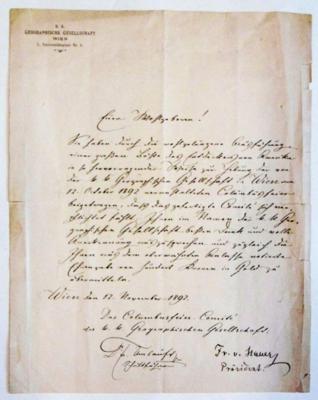 K. K.
GEOGRAPHISCHE GESELLSCHAFT
WIEN
I. Universitätsplatz Nr. 2.
Euer Wohlgeboren!
Sie haben durch die wohlgelungene Ausführung
einer großen Büste des Entdeckers von Amerika
in so hervorragender Weise zu der von
der k. k. Geographischen Gesellschaft in Wien am
12. October 1892 veranstalteten Columbusfeier
beigetragen, daß das gefertigte Comité sich ver-
pflichtet fühlt, Ihnen im Namen der k. k. Geo-
graphischen Gesellschaft besten Dank und volle
Anerkennung auszusprechen und zugleich die
Ihnen aus dem erwähnten Anlasse votierte
Ehrengabe von hundert Kronen in Gold zu
übermitteln.
Wien den 12. November 1892.
Das Columbusfeier Comité
der k. k. Geographischen Gesellschaft.
Fr. v. Hauer
Präsident.